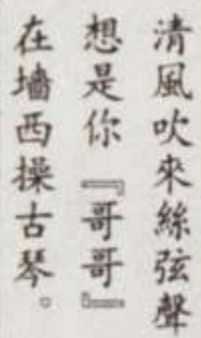 清風吹來絲弦聲
想是你『哥哥』
在墻西操古琴。